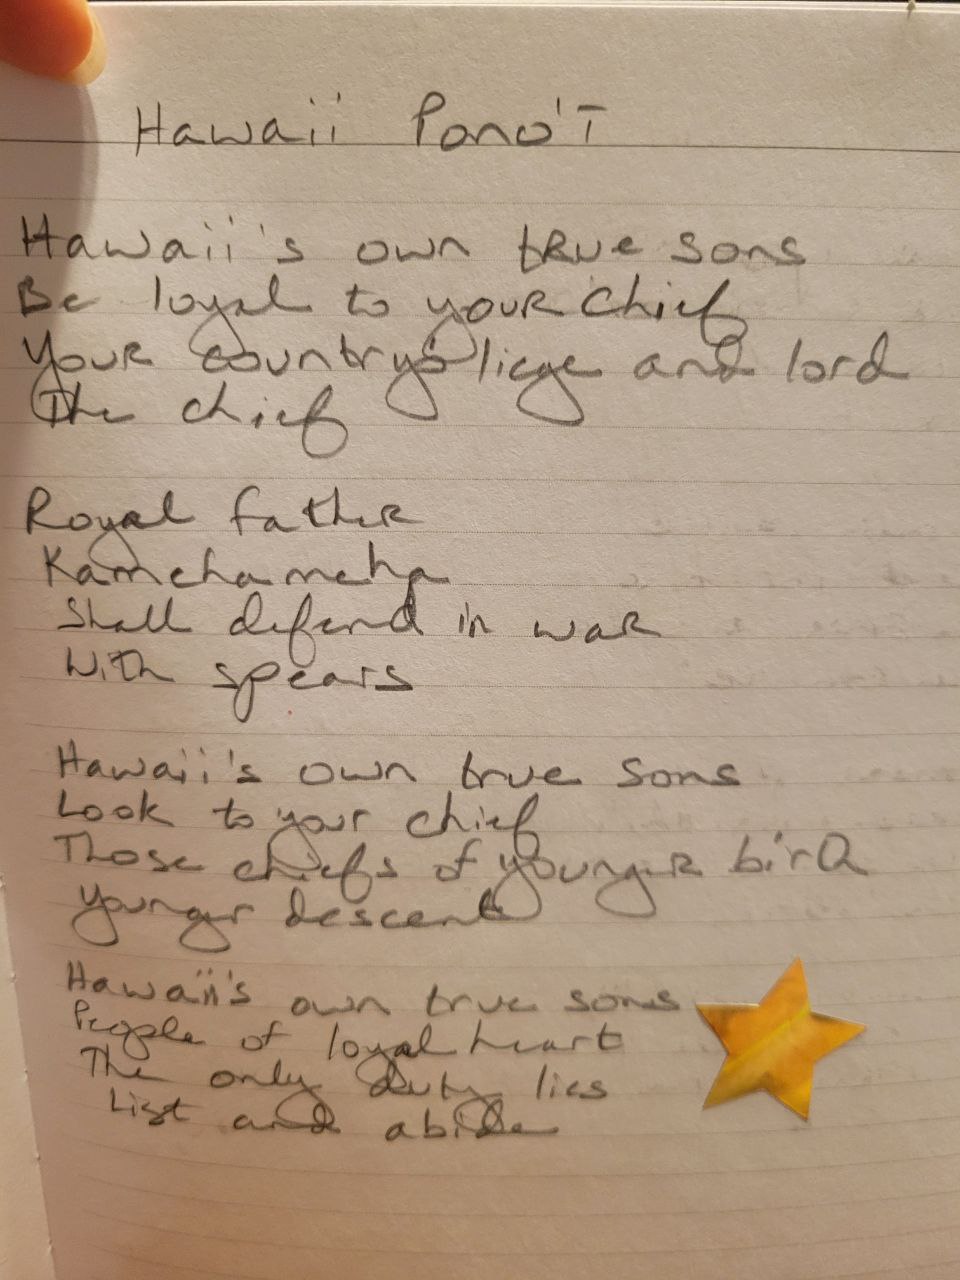 Hawaii Pono'I
Hawaii's own true sons
Be loyal to your chief
Your country's liege and lord
The chief
Royal father
Kamehameha
Shall defend in war
With spears
Hawaii's own true sons
Look to your chief
Those chiefs of younger birth
younger descent
Hawaii's own true sons
People of loyal heart
The only duty lies
List and abide